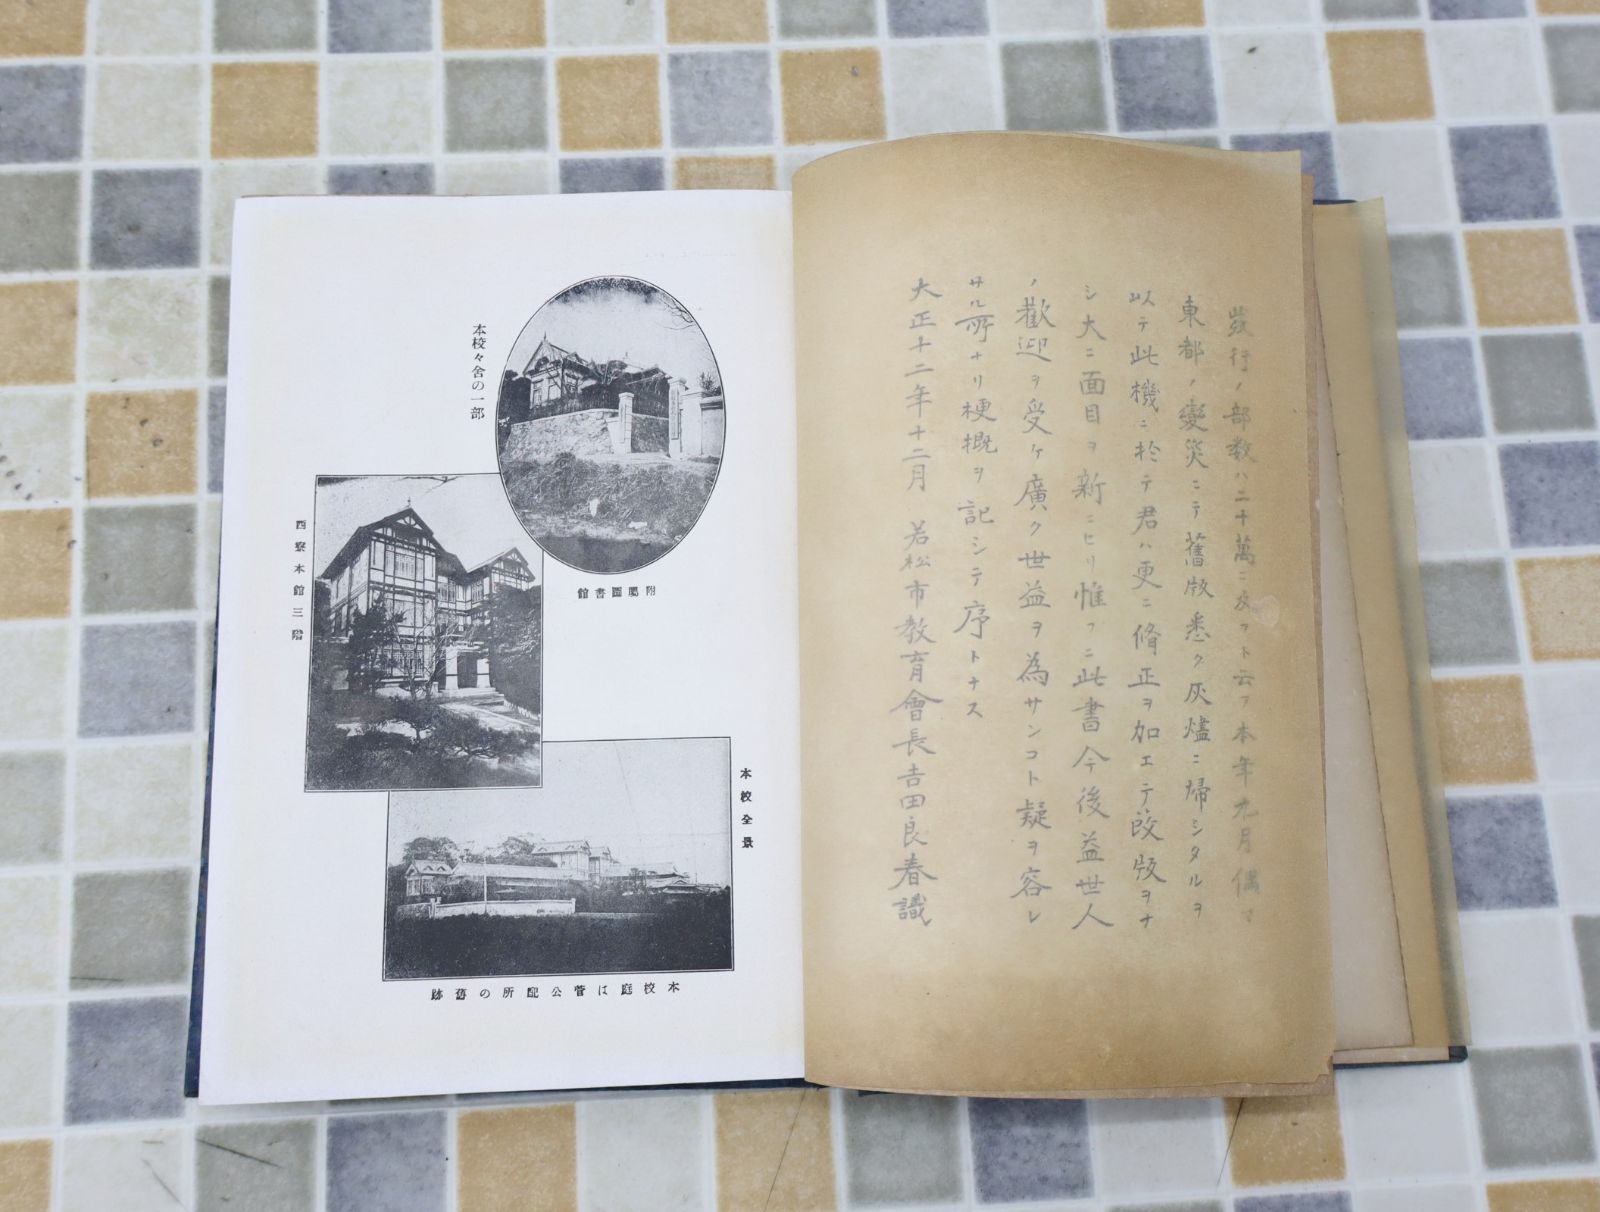 發行ノ部数ハ二十萬ニ及フト云フ本年九月偶マ
東都ノ變災ニテ舊版悉ク灰燼ニ帰シタルヲ
以テ此機ニ於テ君ハ更ニ脩正ヲ加エテ改版ヲナ
シ大ニ面目ヲ新ニセリ惟フニ此書今後益世人
ノ歡迎ヲ受ケ廣ク世益ヲ為サンコト疑ヲ容レ
サル所ナリ梗概ヲ記シテ序トナス
大正十二年十二月 若松市教育會長吉田良春識
本校々舎の一部
附屬圖書館
西寮本館三階
本校全景
本校庭は菅公配所の舊跡